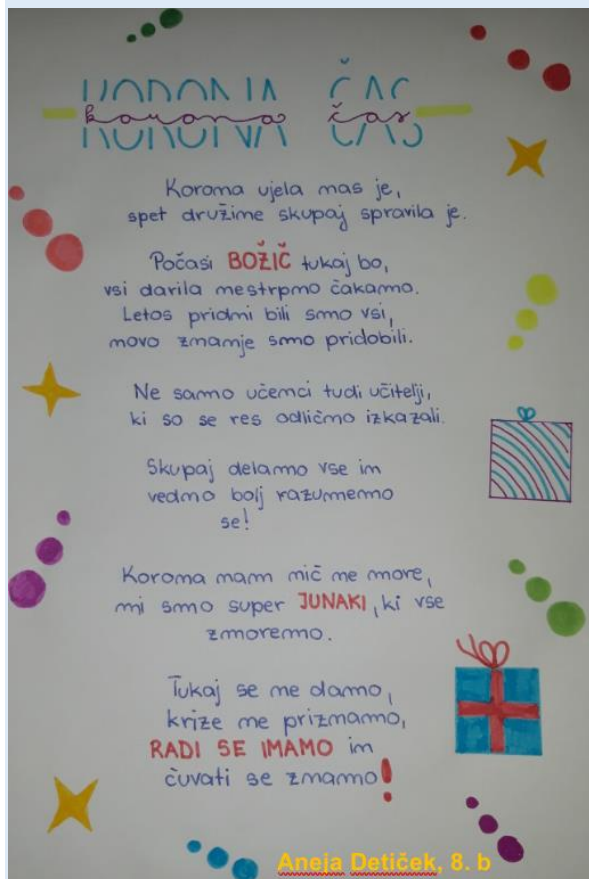 KORONA ČAS
korona čas
Korona ujela nas je,
spet družine skupaj spravila je.
Počasi BOŽIČ tukaj bo,
vsi darila nestrpno čakamo.
Letos pridni bili smo vsi,
novo znanje smo pridobili.
Ne samo učenci tudi učitelji,
ki so se res odlično izkazali.
Skupaj delamo vse in
vedno bolj razumemo
se!
Korona nam nič ne more,
mi smo super JUNAKI, ki vse
zmoremo.
Tukaj se ne damo,
krize ne priznamo,
RADI SE IMAMO in
čuvati se znamo!
Aneja Detiček, 8. b